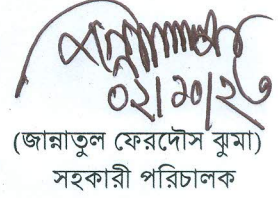 ০২/১০/২৫
(জান্নাতুল ফেরদৌস ঝুমা)
সহকারী পরিচালক